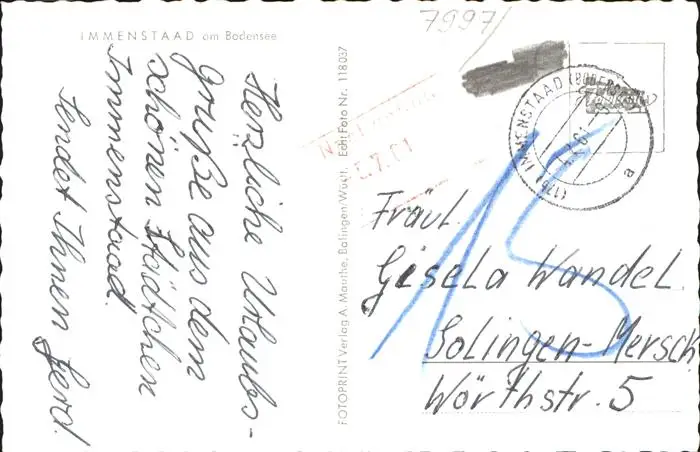 7997/
IMMENSTAAD am Bodensee
Herzliche Urlaubs-
grüße aus dem
schönen Städtchen
Immenstaad
sendet Ihnen Gerd.
FOTOPRINT Verlag A. Mauthe, Balingen/Württ. Echt Foto Nr. 118037
.7.61
(17b) IMMENSTAAD (BODENSEE)
15
Fräul.
Gisela Wandel.
Solingen-Mersch.
Wörthstr. 5